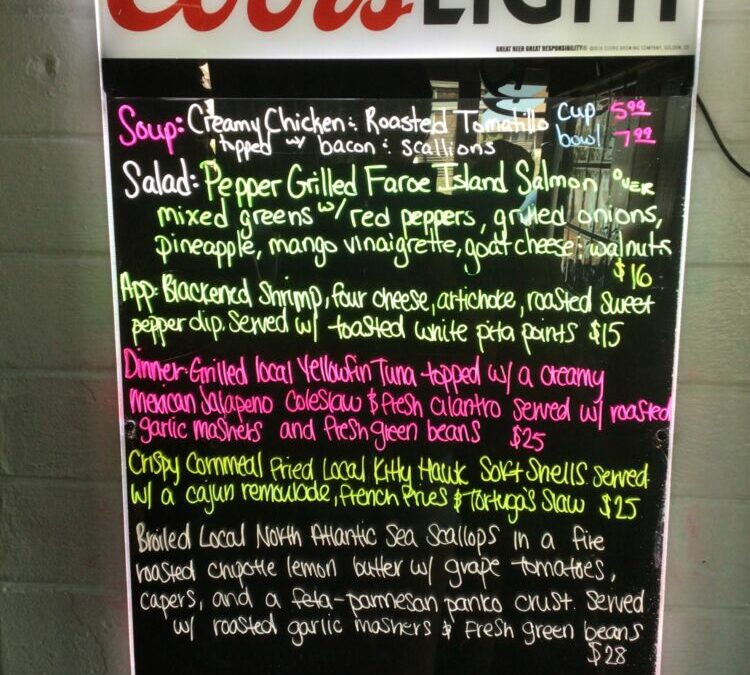 Coors LIGHT
GREAT BEER GREAT RESPONSIBILITY® ©2016 COORS BREWING COMPANY, GOLDEN, CO
Soup: Creamy Chicken & Roasted Tomatillo cup 5.99
topped w/ bacon & scallions bowl 7.99
Salad: Pepper Grilled Faroe Island Salmon over
mixed greens w/ red peppers, grilled onions,
pineapple, mango vinaigrette, goat cheese & walnuts
$16
App: Blackened Shrimp, four cheese, artichoke, roasted sweet
pepper dip. Served w/ toasted white pita points $15
Dinner: Grilled local Yellowfin Tuna topped w/ a creamy
mexican Jalapeno Coleslaw & fresh cilantro served w/ roasted
garlic mashers and fresh green beans $25
Crispy Cornmeal Fried Local Kitty Hawk Soft Shells. Served
w/ a cajun remoulade, French Fries & Tortuga's Slaw $25
Broiled Local North Atlantic Sea Scallops in a fire
roasted chipotle lemon butter w/ grape tomatoes,
capers, and a feta-parmesan panko crust. Served
w/ roasted garlic mashers & fresh green beans
$28